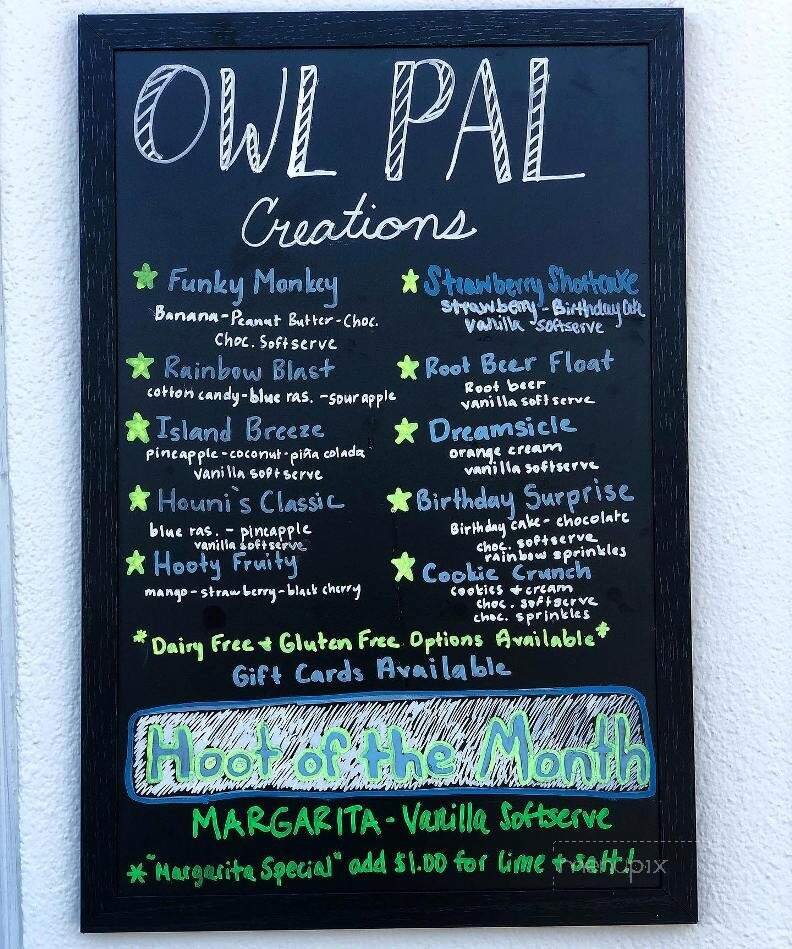 OWL PAL
Creations
Funky Monkey
Banana-Peanut Butter-Choc.
Choc. Softserve
Rainbow Blast
cotton candy-blue ras. -sour apple
Island Breeze
pineapple-coconut-piña colada
vanilla softserve
Houni's Classic
blue ras. - pineapple
vanilla softserve
Hooty Fruity
mango-strawberry-black cherry
Strawberry Shortcake
strawberry-Birthday Cake
vanilla-softserve
Root Beer Float
Root beer
vanilla softserve
Dreamsicle
orange cream
vanilla softserve
Birthday Surprise
Birthday cake- chocolate
choc. softserve
rainbow sprinkles
Cookie Crunch
cookies + cream
choc. softserve
choc. sprinkles
*Dairy Free + Gluten Free Options Available*
Gift Cards Available
Hoot of the Month
MARGARITA-Vanilla Softserve
*"Margarita Special" add $1.00 for lime + salt!
menupix